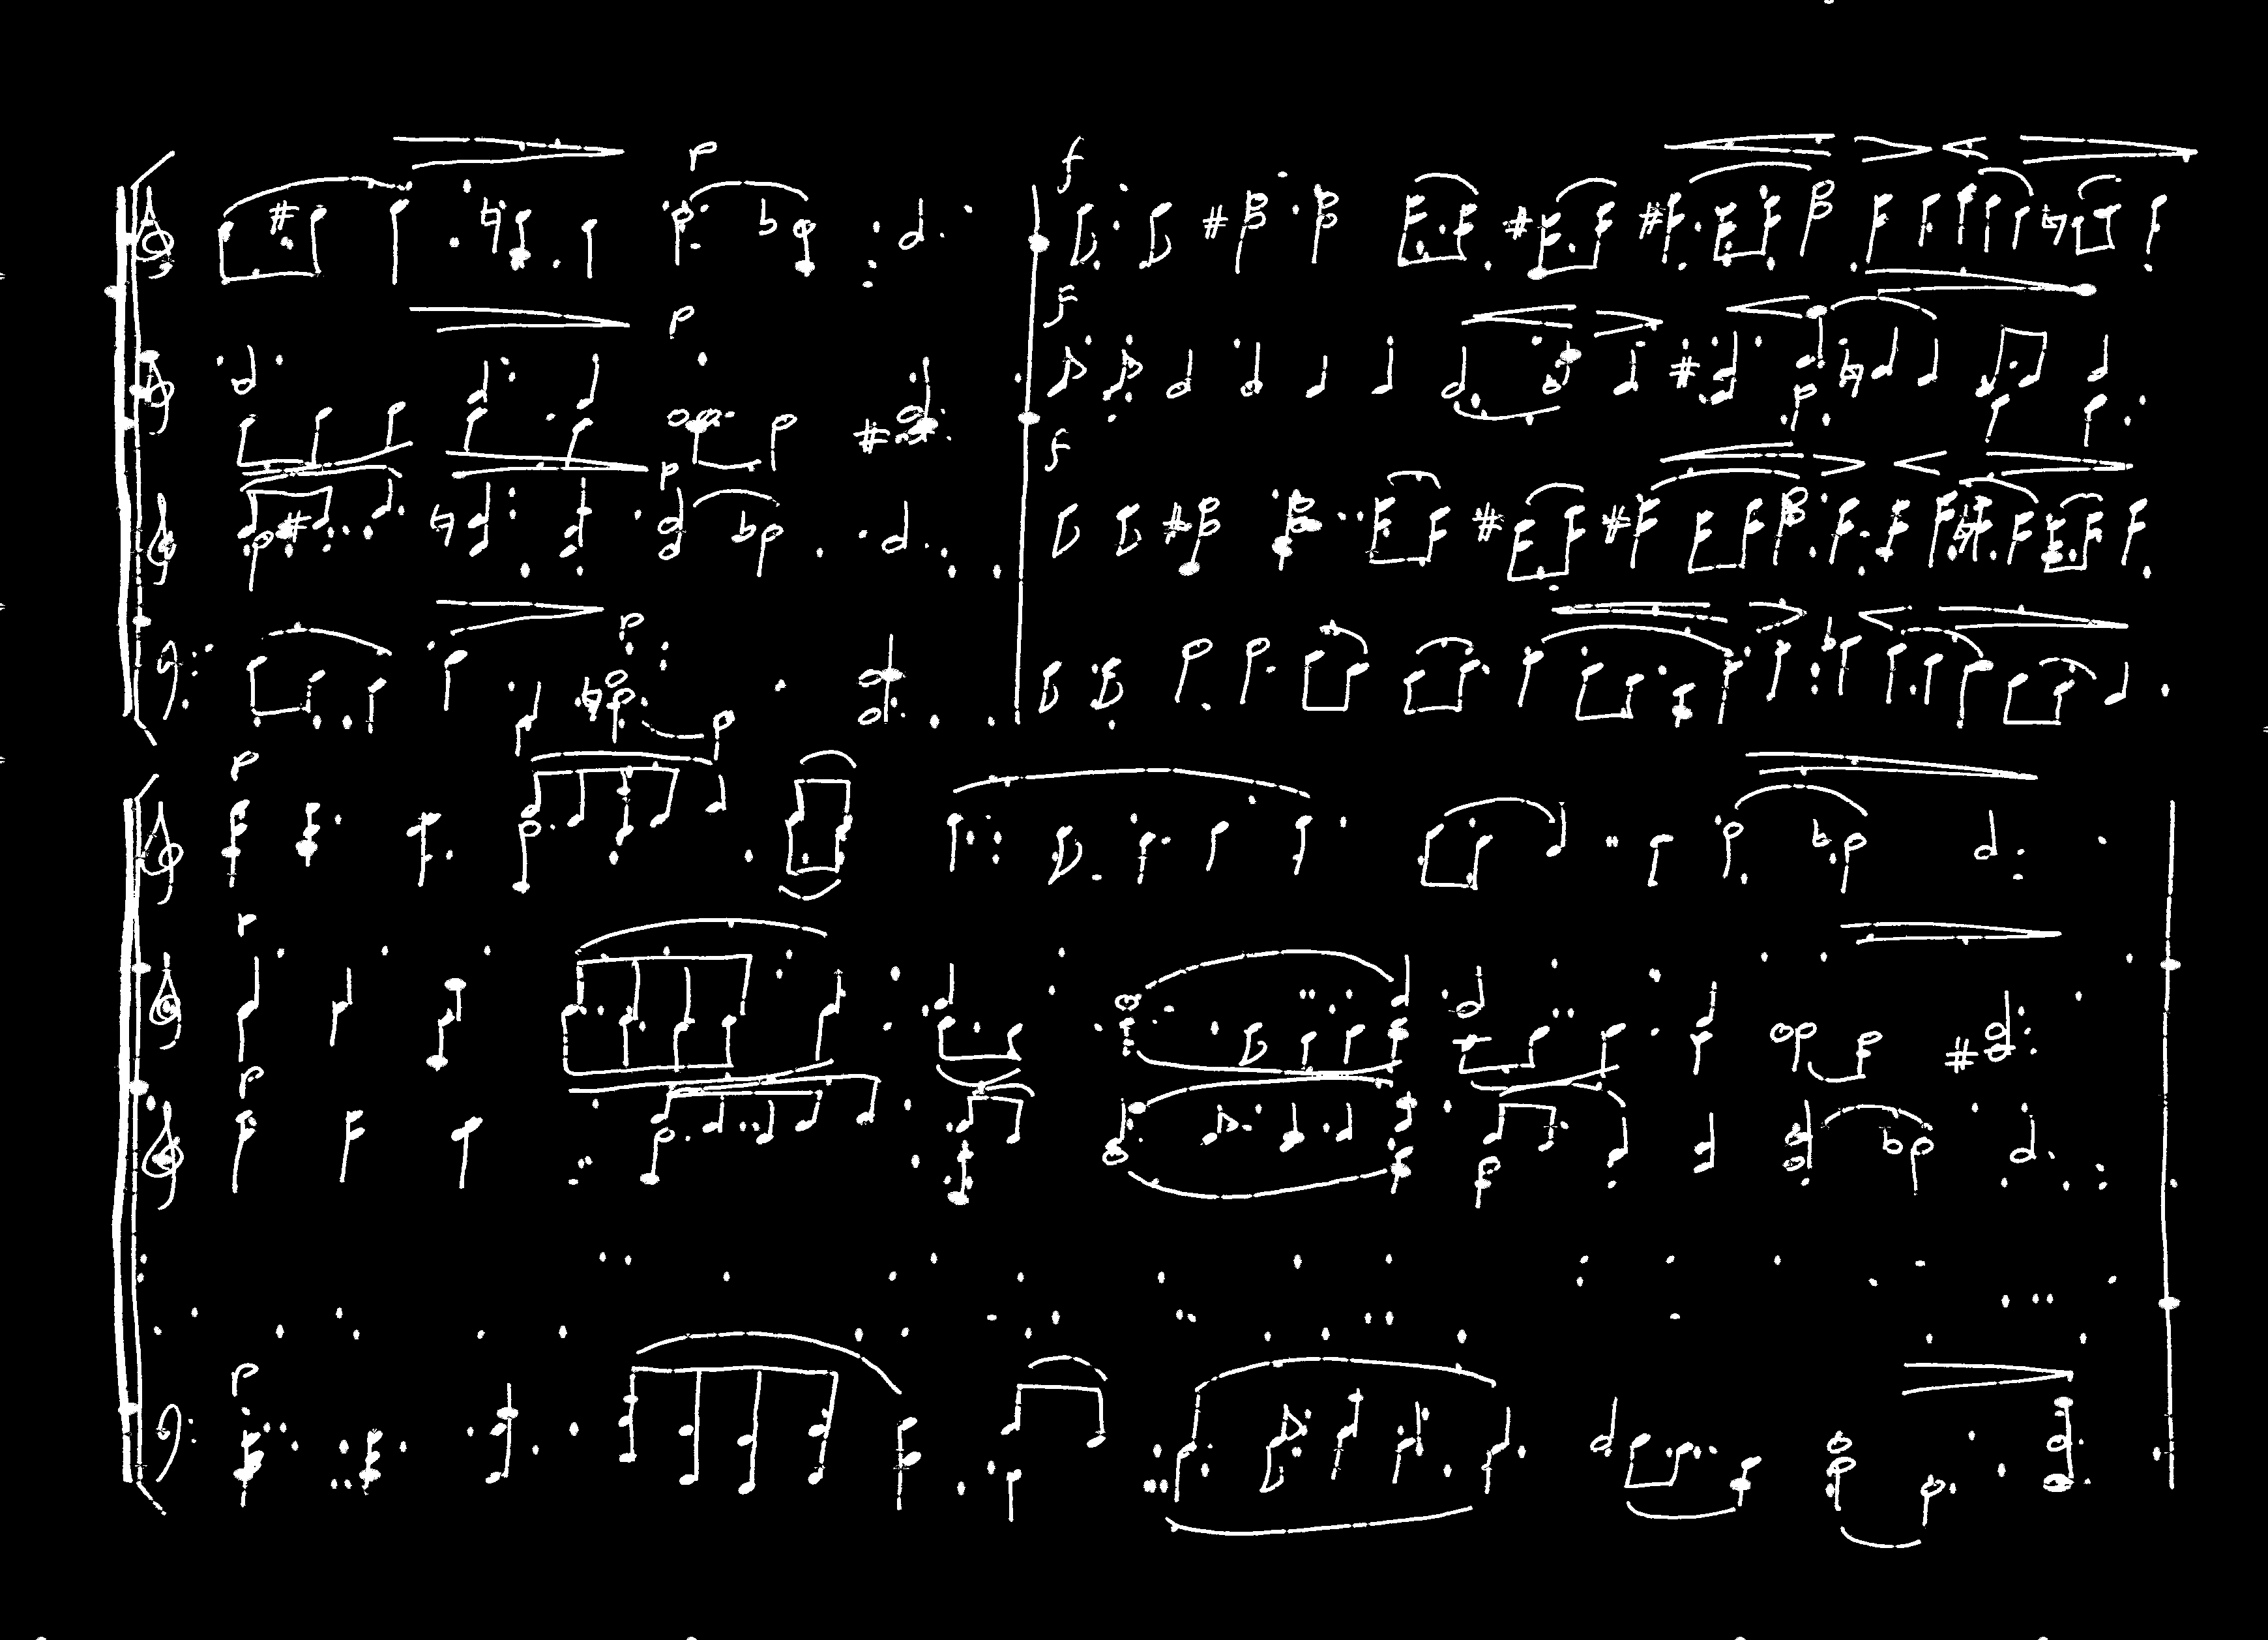 p f
f p
f p
p
p
p
p
p